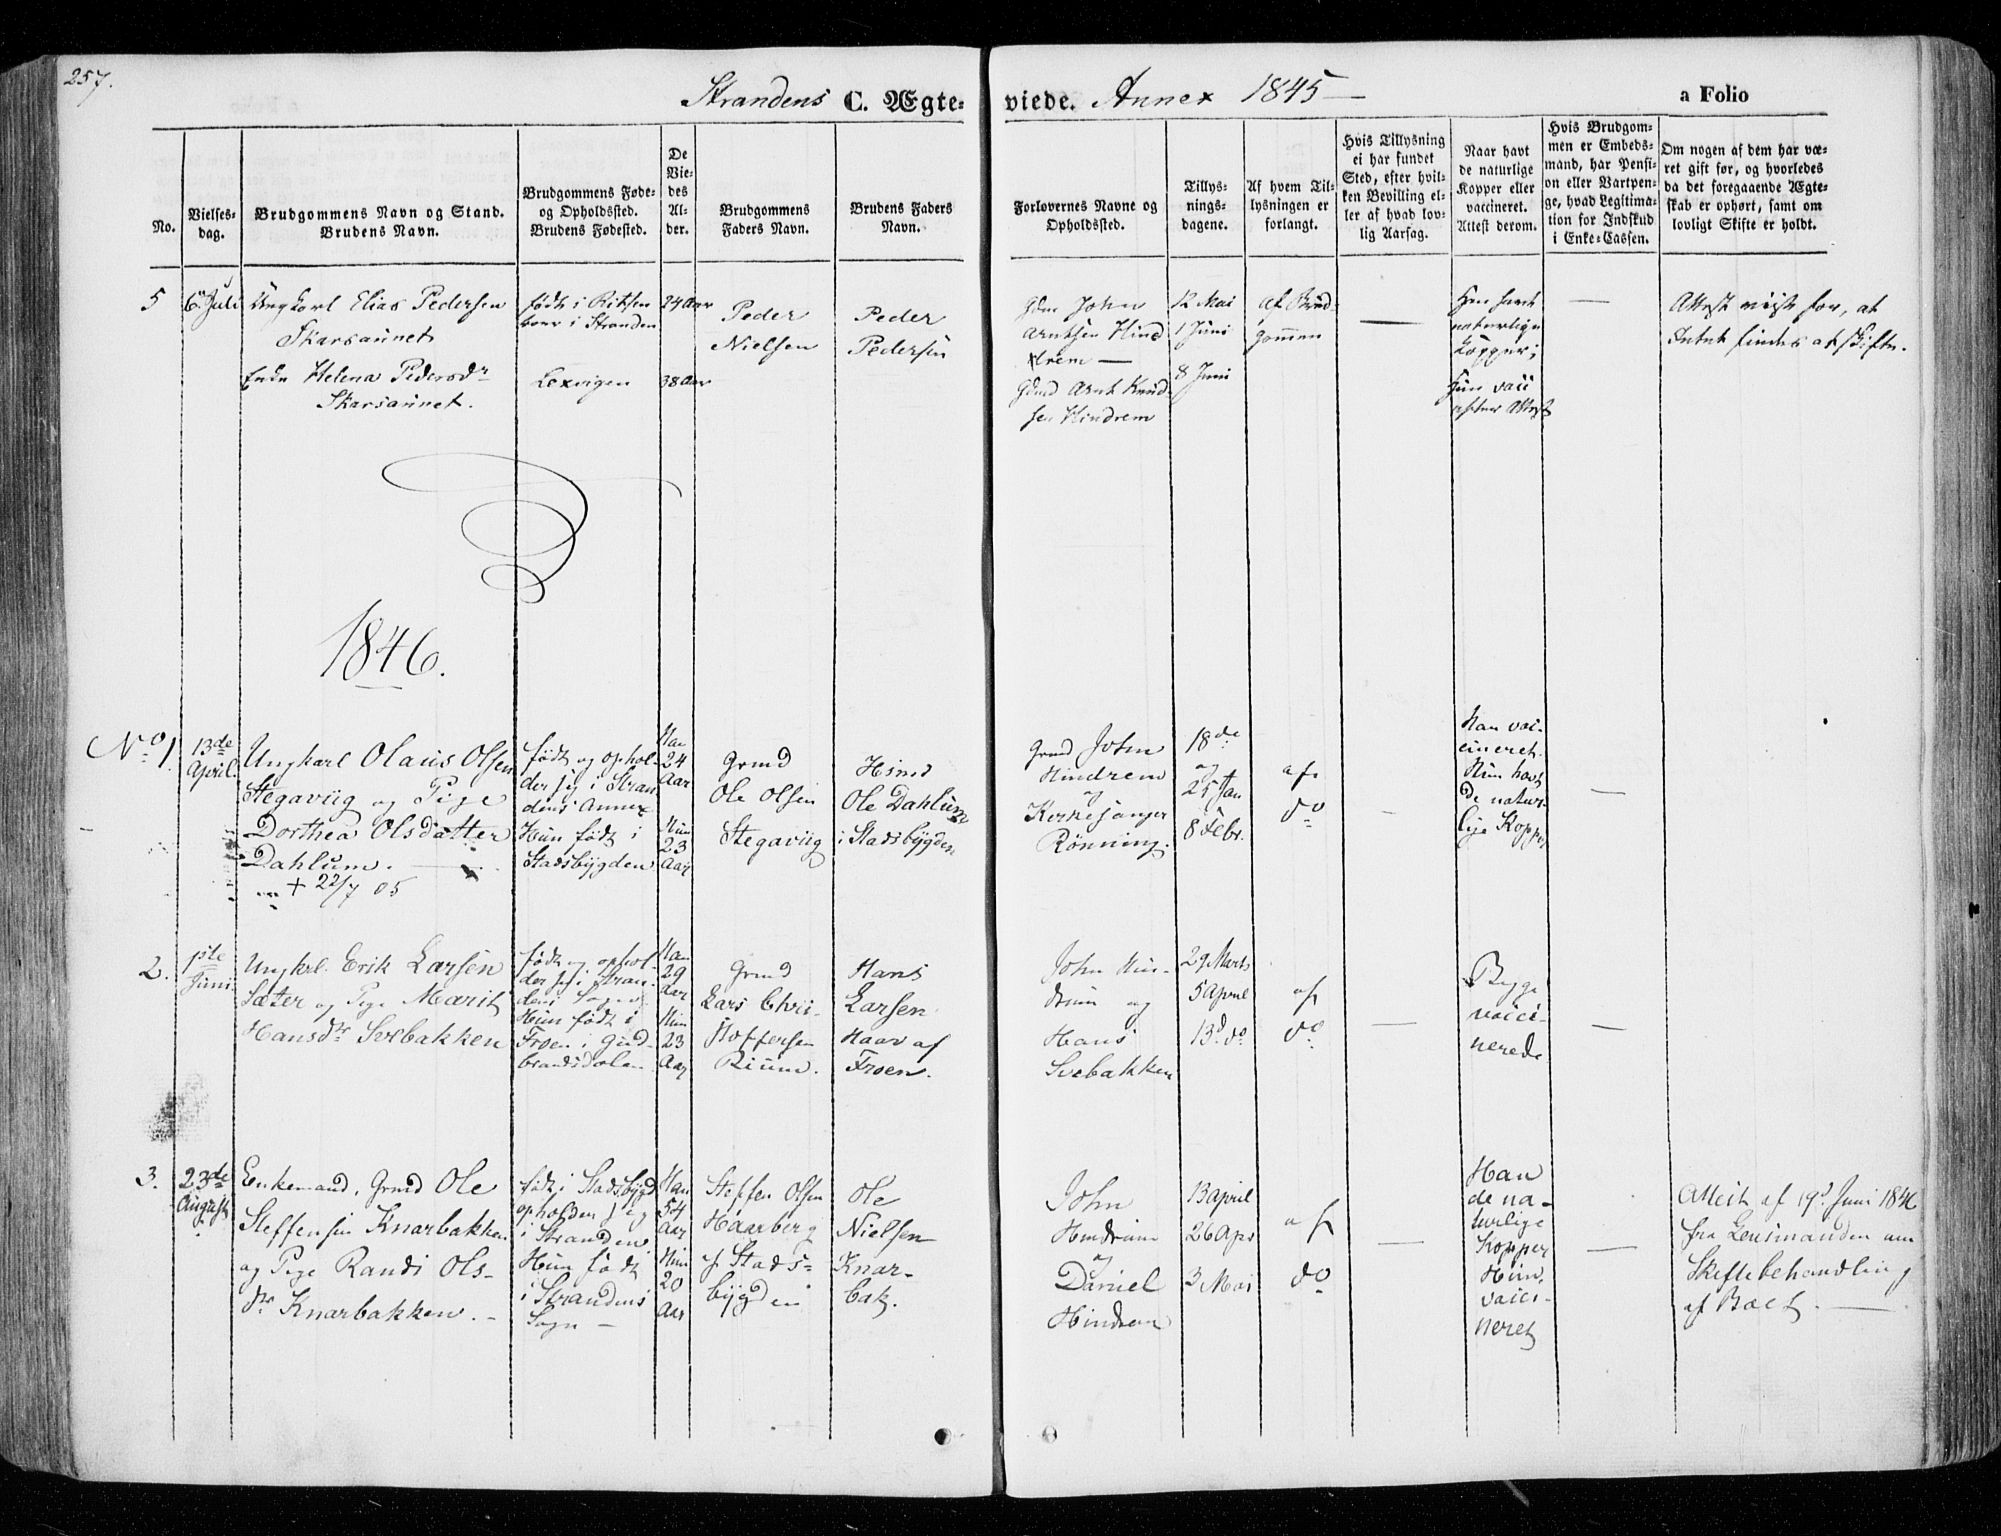 257.
Strandens C. Ægte-viede. Annex 1845
a Folio
No.
Vielses-
dag.
Brudgommens Navn og Stand.
Brudens Navn.
Brudgommens Føde-
og Opholdssted.
Brudens Fødested.
De
Vie-
des
Al-
der.
Brudgommens
Faders Navn.
Brudens Faders
Navn.
Forlovernes Navne og
Opholdssted.
Tillys-
nings-
dagene.
Af hvem Til-
lysningen er
forlangt.
Hvis Tillysning
ei har fundet
Sted, efter hvil-
ken Bevilling el-
ler af hvad lov-
lig Aarsag.
Naar havt
de naturlige
Kopper eller
vaccineret.
Attest derom.
Hvis Brudgom-
men er Embeds-
mand, har Pensi-
on eller Vartpen-
ge, hvad Legitima-
tion for Indskud
i Enke-Cassen.
Om nogen af dem har væ-
ret gift før, og hvorledes
da det foregaaende Ægte-
skab er ophørt, samt om
lovligt Skifte er holdt.
5
6 Juli
Ungkarl Elias Pedersen
Skarsaunet
Enke Helena Pedersdr
Skarsaunet.
født i Riksen
i Stranden
Lexvigen
24 Aar
38 Aar
Peder
Nielsen
Peder
Pedersen
Gdm John
Arntsen Hind
drem —
Gdmd Arnt Knud-
sen Hindrem
12 Mai
1 Juni
8 Juni
Af Brud-
gommen
—
Han havt
naturlige
Kopper;
Hun vacc
efter Attest
—
Attest viist for, at
Intet findes at skifte.
1846.
No 1.
13de
April.
Ungkarl Olaus Olsen
Stegaviig og Pige
Dorthea Olsdatter
Dahlum.
+ 22/7 05
født og ophol-
der sig i Stran
dens Annex
Hun født i
Stadsbygden
Han
24
Aar
Hun
23
Aar
Grmd
Ole Olsen
Stegaviig
Hsmd
Ole Dahlum
i Stadsbygden
Grmd John
Hindrem
og
Kirkesanger
Rönning.
18de
og
25 Jan
8 Febr.
af
do
-
Han vac-
cineret.
Hun havt
de natur-
lige Kopper
—
2.
1ste
Juni
Ungkrl. Erik Larsen
Sæter og Pige Marit
Hansdr Svebakken
født og ophol-
der sig i Stran-
dens Sogn
Hun født i
Froen i Gud-
brandsdalen
Han
29
Aar
Hun
23
Aar
Grmd
Lars Chri-
stoffersen
Riium.
Hans
Larsen
Haav af
Froen.
John Hin-
drum og
Hans
Svebakken
29 Marts
5 April
13d do
af
do
—
Begge
vacci-
nerede
—
3.
23de
August
Enkemand, Grmd Ole
Steffensen Knarbakken
og Pige Randi Ols-
dr Knarbakken. -
født i Stadsbygd
opholder sig
i Stranden
Hun født
i Strandens
Sogn —
Han
54
Aar
Hun
20
Aar
Steffen Olsen
Haarberg
af Stads-
bygden
Ole
Nielsen
Knar-
bak.
John
Hindrum
og
Daniel
Hindrem
13 April
26 Apr
3 Mai
af
do
—
Han
de na-
turlige
Kopper
Hun
vacci-
neret
—
Attest af 19d Juni 1846
fra Lensmanden om
Skiftebehandling
af Boet. —